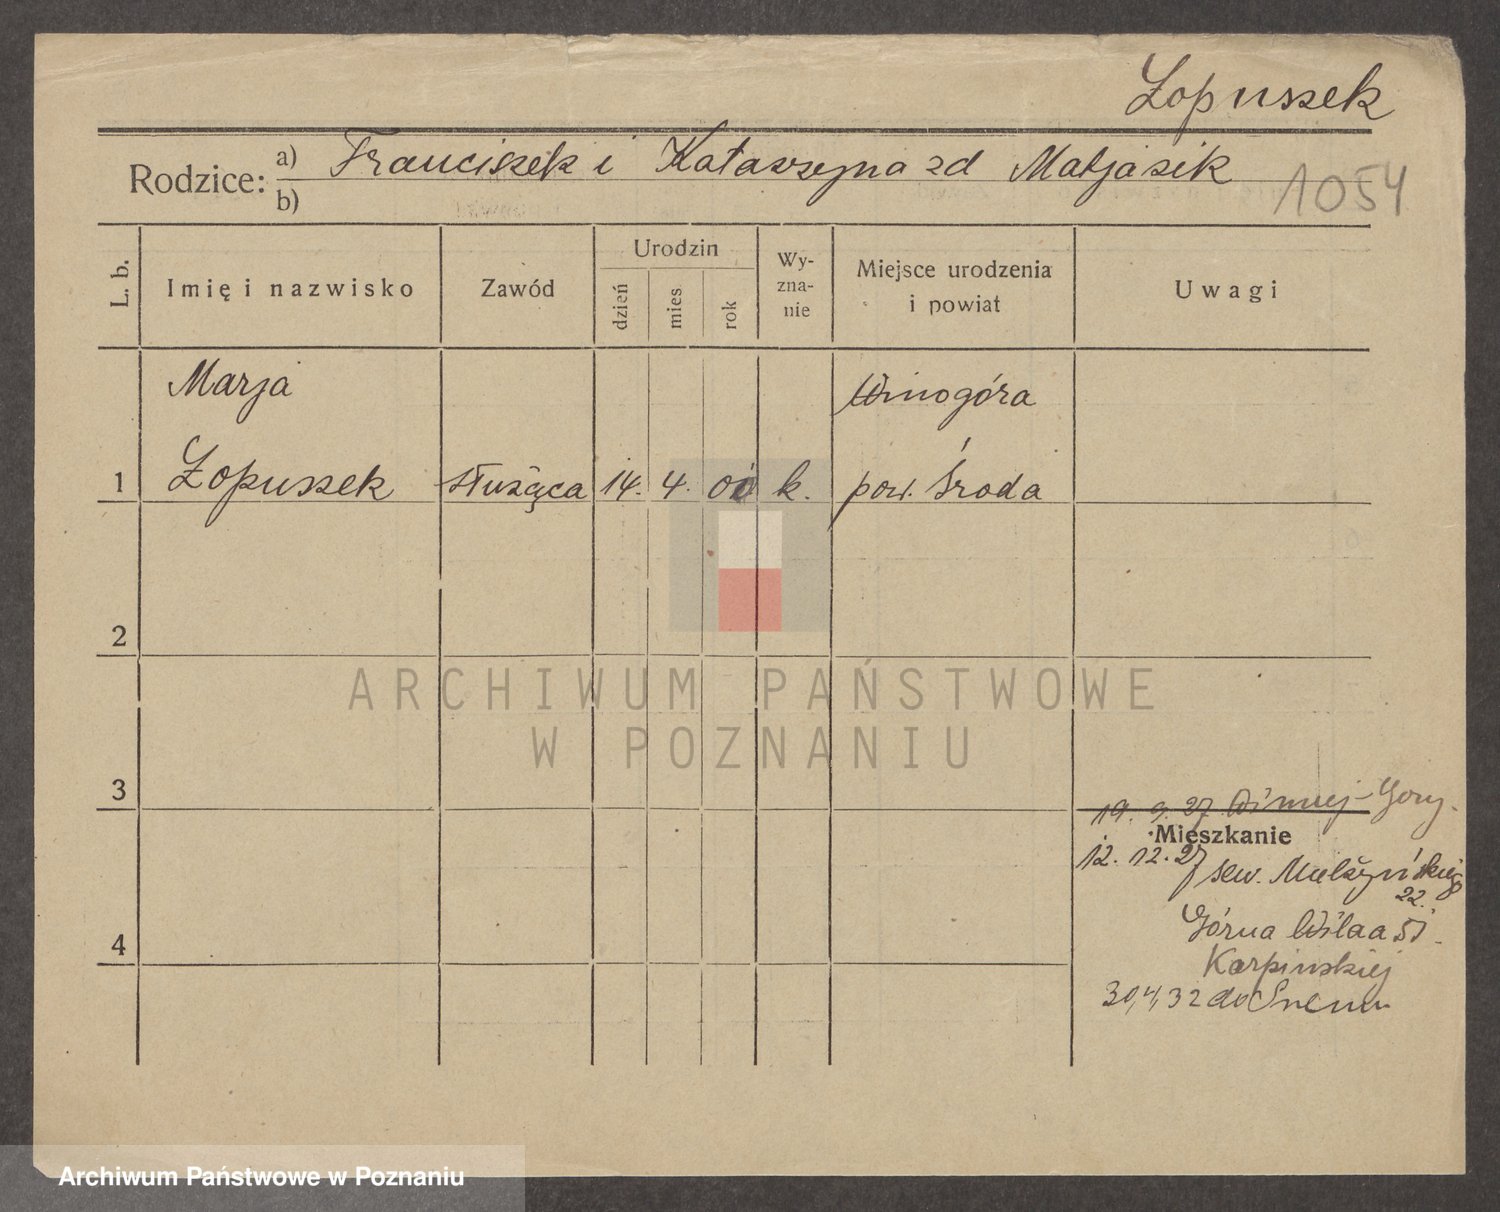 Łopuszek
Rodzice: a) Franciszek i Katarzyna zd Matjasik
b)
1054
L. b.
Imię i nazwisko
Zawód
Urodzin
dzień
mies
rok
Wy-
zna-
nie
Miejsce urodzenia
i powiat
Uwagi
Marja
Winogóra
1 Łopuszek służąca 14. 4. k. pow. Środa
2
ARCHIWUM PAŃSTWOWE
W POZNANIU
3
19. 9. 27 Góry.
Mieszkanie
12. 12. 27 sew. Mielżyńskiego
22.
4
Górna Wilda 51.
Karpińskiej
30,4,32 do Śremu
Archiwum Państwowe w Poznaniu